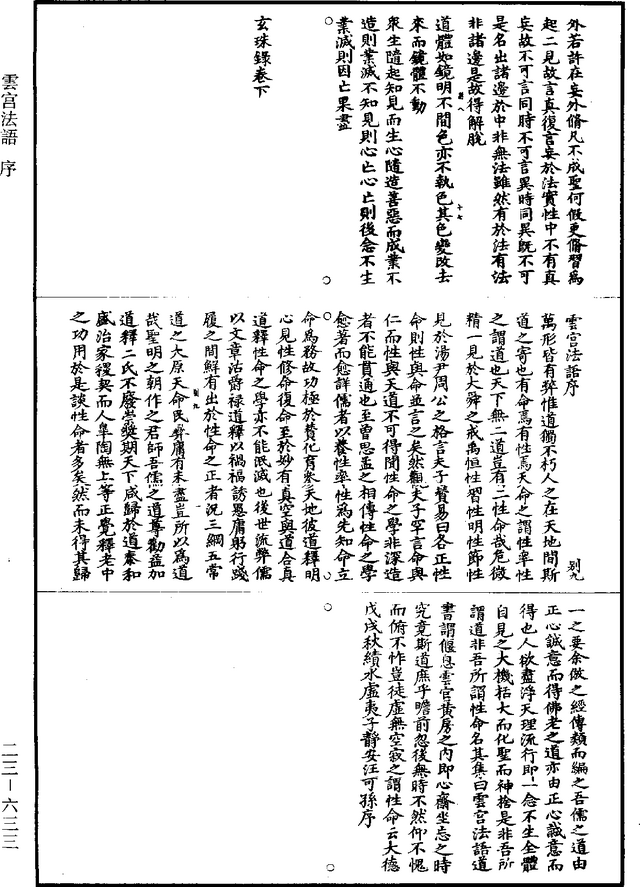 外若許在妄外脩凡不成聖何假更脩習為
起二見故言真復言妄於法實性中不有真
妄故不可言同時不可言異時同異既不可
是名出諸邊於中非無法雖然有於法有法
非諸邊是故得解脫
道體如鏡明不間色亦不執色其色變改去
來而鏡體不動
衆生隨起知見而生心隨造善惡而成業不
造則業滅不知見則心亡心亡則後念不生
業滅則因亡果盡
玄珠錄卷下
雲宫法語序
别九
萬形皆有弊惟道獨不朽人之在天地間斯
道之寄也有命焉有性焉天命之謂性率性
之謂道也天下無二道豈有二性命哉危微
精一見於大舜之戒焉恒性習性明性節性
見於湯尹周公之格言夫子賛易曰各正性
命則性與命並言之矣然觀夫子罕言命與
仁而性與天道不可得聞性命之學非深造
者不能貫通也至曾思孟之相傳性命之學
愈著而愈詳儒者以養性率性為先知命立
命為務故功極於賛化育叅天地彼道釋明
心見性修命復命至於妙有真空與道合真
道釋性命之學亦不能泯滅也後世流弊儒
以文章沽爵禄道釋以禍福誘愚庸躬行踐
履之間鮮有出於性命之正者况三綱五常
道之大原天命民彛庸有未盡豈所以為道
哉聖明之朝作之君師吾儒之道尊勸益加
道釋二氏不廢崇奬期天下咸歸於道泰和
盛治家稷契而人皐陶無上等正覺釋老中
之功用於是談性命者多矣然而未得其歸
一之要余倣之經傳類而編之吾儒之道由
正心誠意而得佛老之道亦由正心誠意而
得也人欲盡浮天理流行即一念不生全體
自見之大機括大而化聖而神捨是非吾所
謂道非吾所謂性命名其集曰雲宫法語道
書謂偃息雲宫黄房之内即心齋坐忘之時
究竟斯道庶乎瞻前忽後無時不然仰不愧
而俯不怍豈徒虚無空寂之謂性命云大德
戊戌秋績水虚夷子靜安汪可孫序
雲宫法語 序
二三－六三三